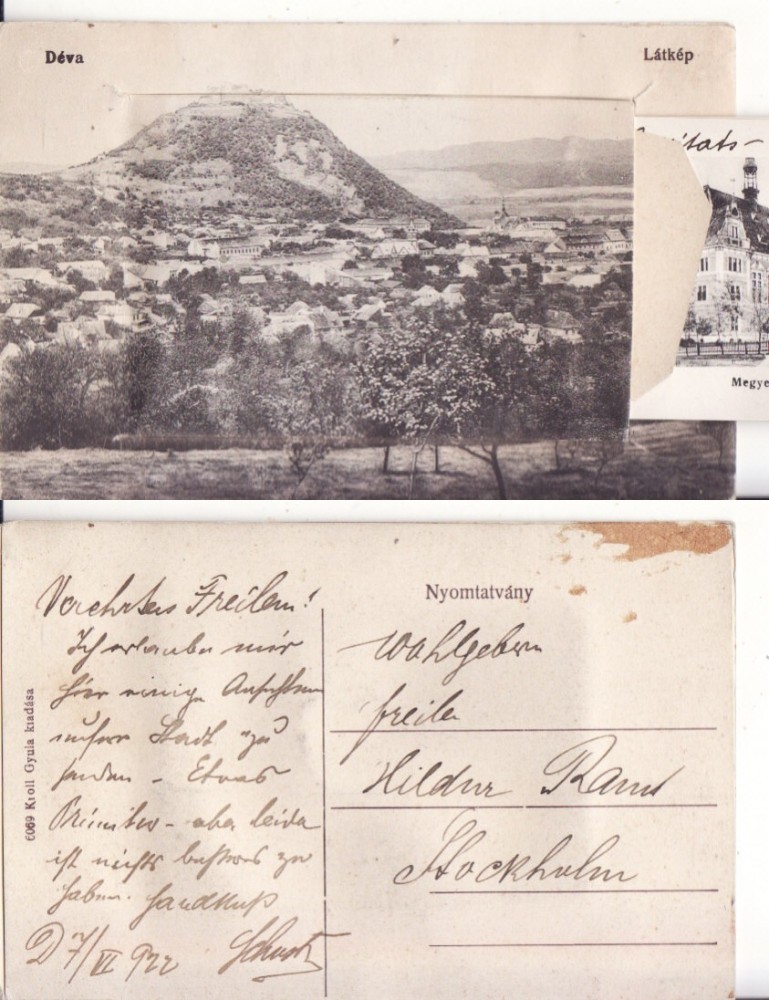 Déva
Látkép
Megye
6009 Kroll Gyula kiadása
Nyomtatvány
Verehrtes Freilein!
Ich erlaube mir
hier einige Ansichten
unserer Stadt zu
senden - Etwas
Primitiv - aber leider
ist nichts besseres zu
haben. Handkuß
D 7/VI 922
Wohlgeborn
freile
Hildur
Stockholm